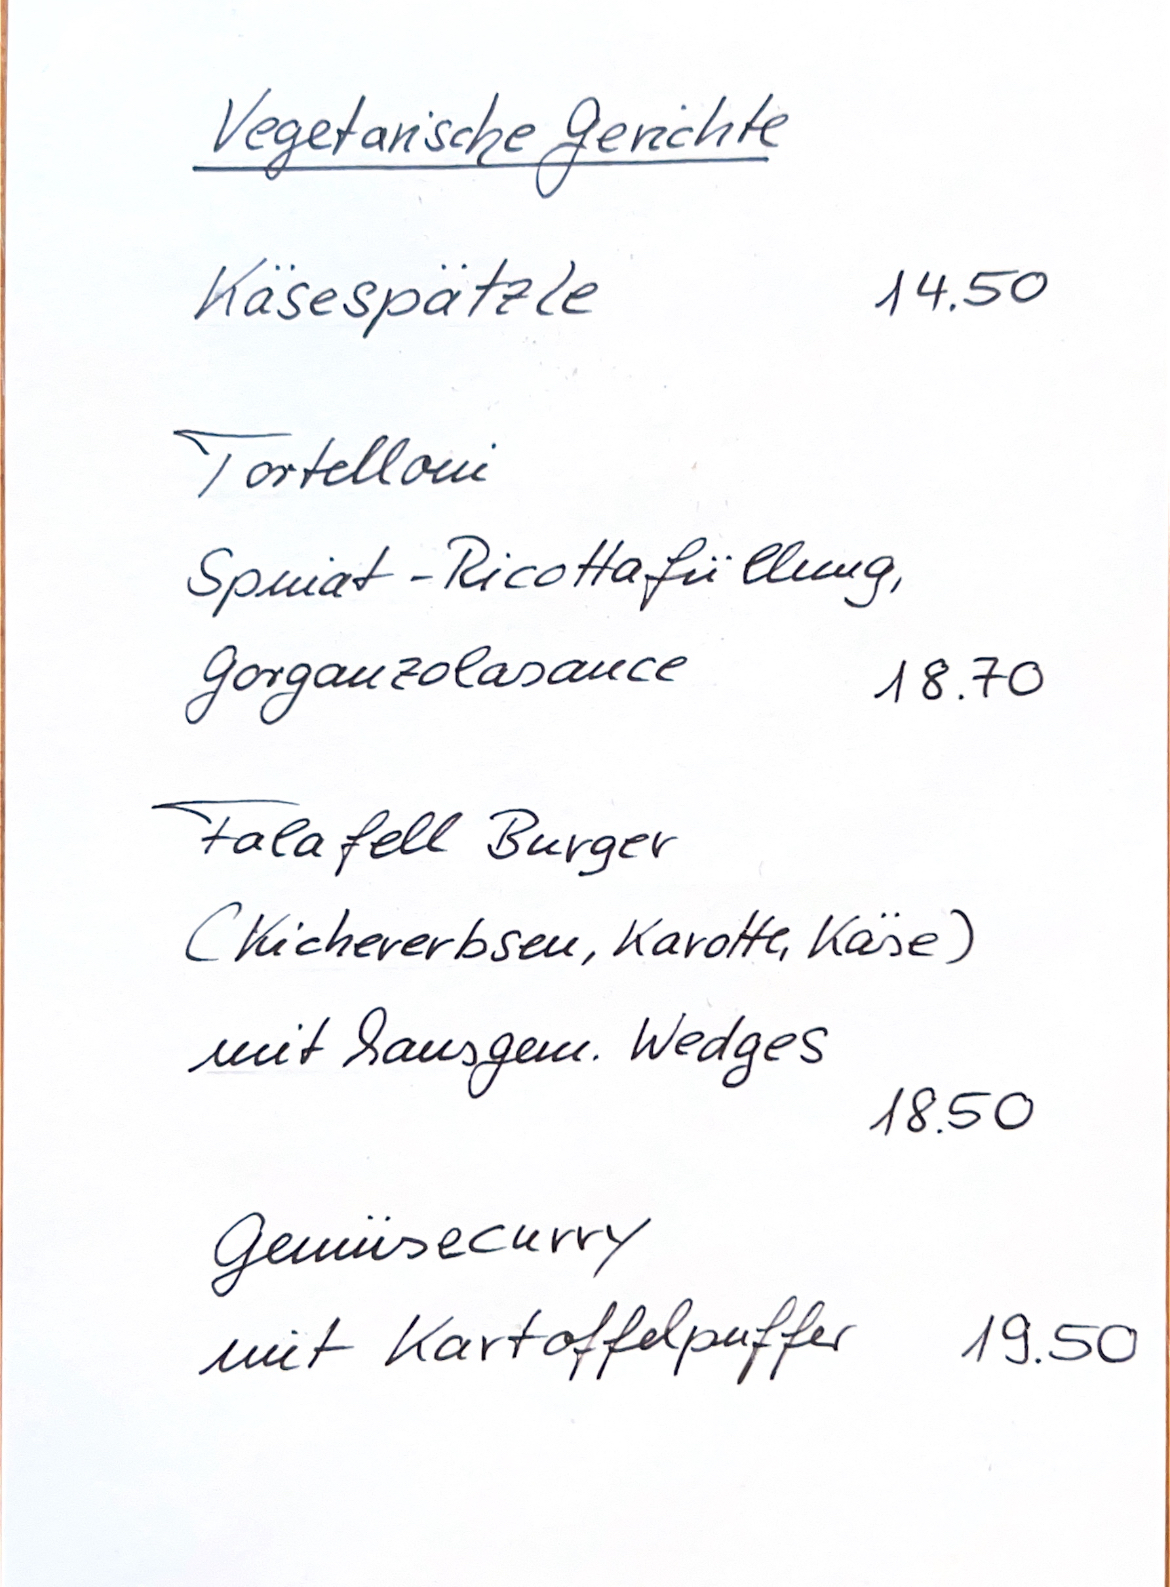 Vegetarische Gerichte
Käsespätzle 14.50
Tortelloni
Spinat-Ricottafüllung,
Gorganzolasauce 18.70
Falafell Burger
(Kichererbsen, Karotte, Käse)
mit hausgem. Wedges
18.50
Gemüsecurry
mit Kartoffelpuffer 19.50